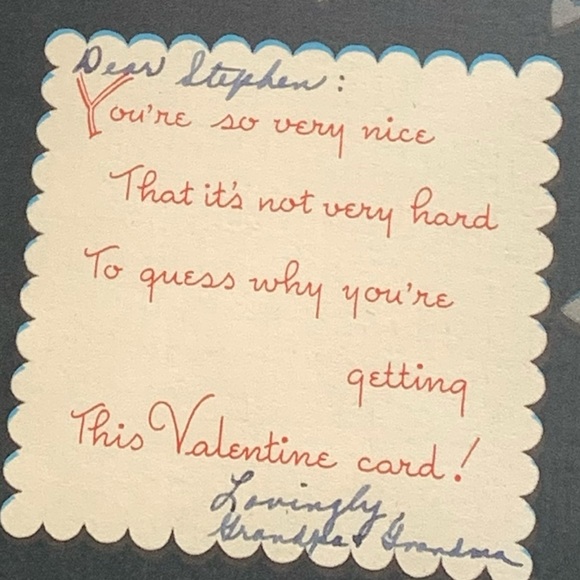 Dear Stephen:
You're so very nice
That it's not very hard
To guess why you're
getting
This Valentine card!
Lovingly,
Grandpa & Grandma